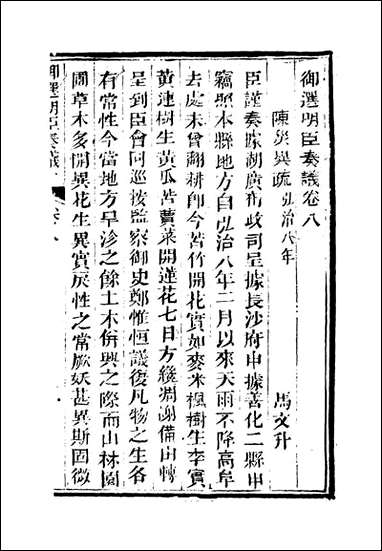 御選明臣奏議卷八
陳災異疏 弘治八年 馬文升
臣謹奏據湖廣布政司呈據長沙府申據善化二縣申
竊照本縣地方自弘治八年二月以來天雨不降高阜
去處未曾翻耕卽今苦竹開花實如麥米楓樹生李實
黃連樹生黃瓜苦蕒菜開蓮花七日方纔凋謝備由轉
呈到臣會同巡按監察御史鄭惟恒議後凡物之生各
有常性今當地方旱沴之餘土木倂興之際而山林園
圃草木多開異花生異實戾性之常厥妖甚異斯固微
御選明臣奏議 卷八